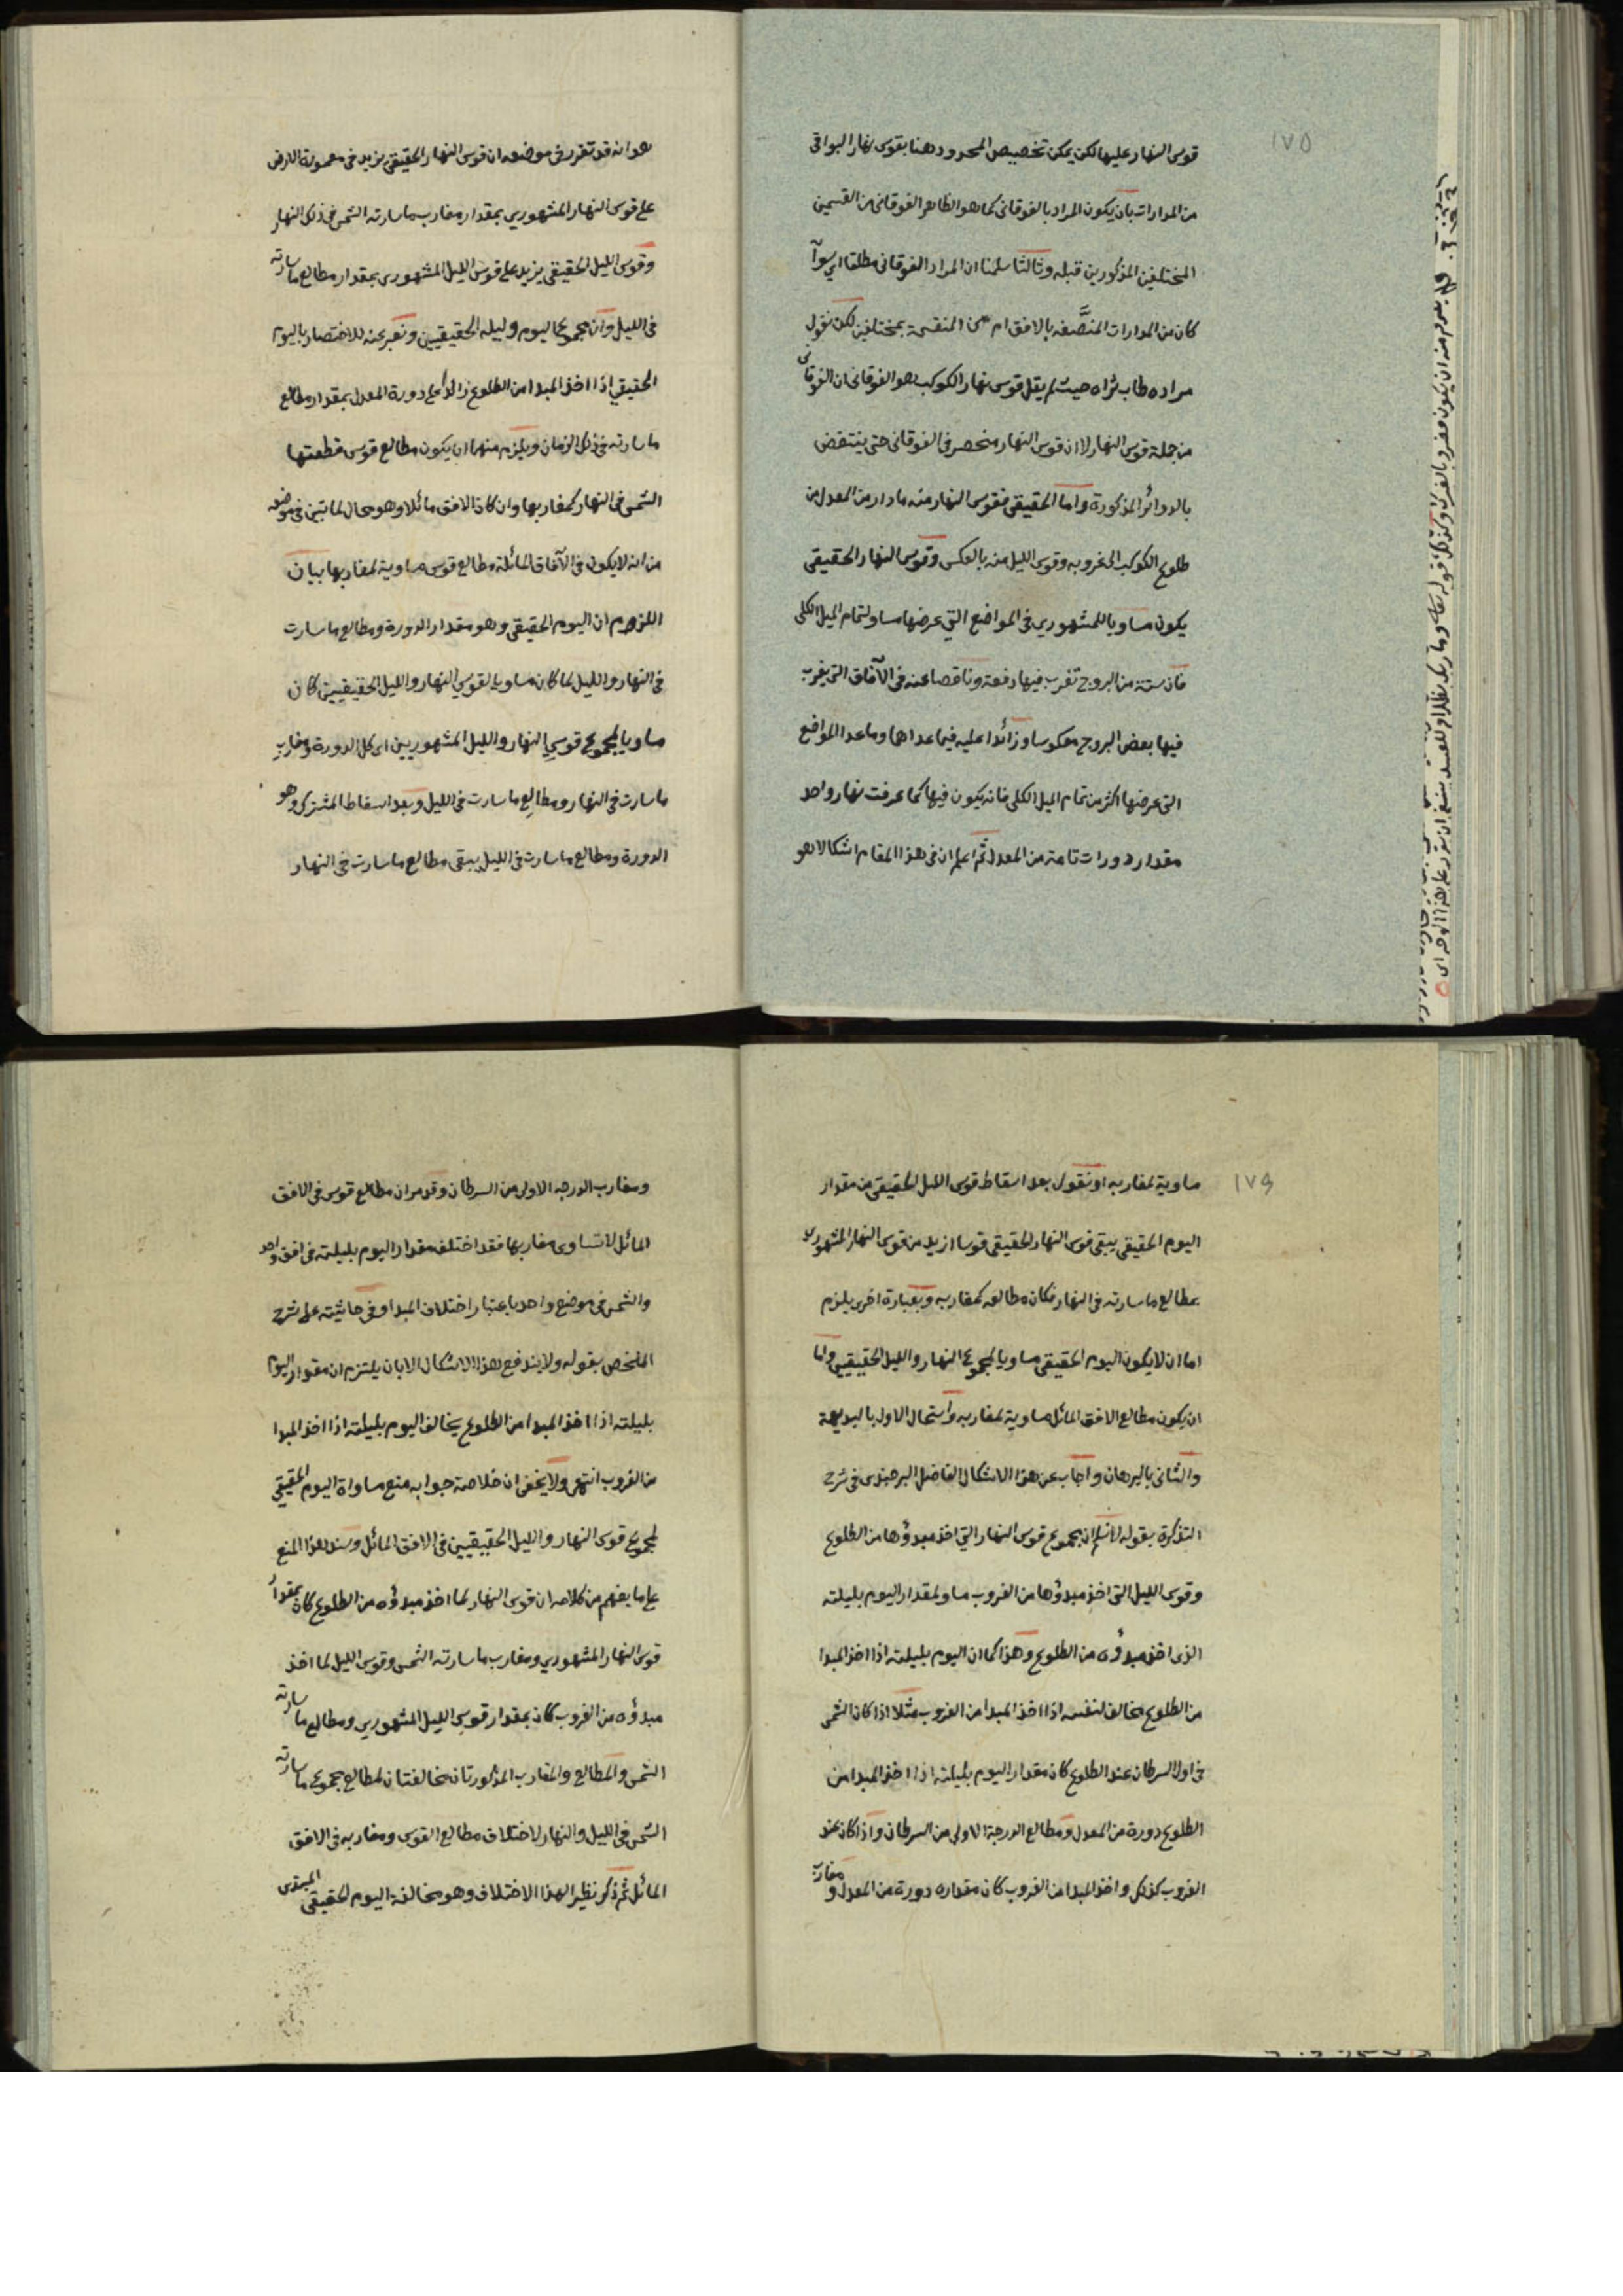 ١٧٥
قوس النهار عليها لكن يمكن تخصيص المحدود هنا بقوس نهار البواقى
من المدارات بان يكون المراد بالفوقانى كما هو الظاهر الفوقانى من القسمين
المختلفين المذكورين قبله وثالثا سلمنا ان المراد الفوقانى مطلقا اى سوآ
كان من المدارات المنصَّفه بالافق ام من المنقسمة بمختلفين لكن نقول
مراده طاب ثراه حيث لم يقل قوس نهار الكوكب هو الفوقانى ان الفوقانى
من جملة قوس النهار لا ان قوس النهار منحصر فى الفوقانى حتى ينتقض
بالدوائر المذكورة واما الحقيقى فقوس النهار منه ما دار من المعدل من
طلوع الكوكب الى غروبه وقوس الليل منه بالعكس وقوس النهار الحقيقى
يكون مساويا للمشهورى فى المواضع التى عرضها مساو لتمام الميل الكلى
فان ستة من البروج تغرب فيها دفعة وناقصا عنه فى الآفاق التى يغرب
فيها بعض البروج معكوسا وزائدا عليه فيما عداهما وما عدا المواضع
التى عرضها اكثر من تمام الميل الكلى فانه يكون فيها كما عرفت نهار واحد
مقدار دورات تامة من المعدل ثم اعلم ان فى هذا المقام اشكالا هو
هو انه قد تقرر فى موضعه ان قوس النهار الحقيقى يزيد فى معمورة الارض
على قوس النهار المشهورى بمقدار مغارب ما سارته الشمس فى ذلك النهار
وقوس الليل الحقيقى يزيد على قوس الليل المشهورى بمقدار مطالع ما سارته
فى الليل وان مجموع اليوم وليله الحقيقيين ونعبر عنه للاختصار باليوم
الحقيقى اذا اخذ المبدا من الطلوع زائد على دورة المعدل بمقدار مطالع
ما سارته فى ذلك الزمان ويلزم منهما ان يكون مطالع قوس قطعتها
الشمس فى النهار كمغاربها وان كان الافق مائلا وهو محال لما تبين فى موضعه
من انه لا يكون فى الآفاق المائلة مطالع قوس مساوية لمغاربها بيان
اللزوم ان اليوم الحقيقى وهو مقدار الدورة ومطالع ما سارت
فى النهار والليل لما كان مساويا لقوسي النهار والليل الحقيقيين كان
مساويا لمجموع قوسي النهار والليل المشهوريين اى كل الدورة ومغارب
ما سارت فى النهار ومطالع ما سارت فى الليل وبعد اسقاط المشترك وهو
الدورة ومطالع ما سارت فى الليل يبقى مطالع ما سارت فى النهار
١٧٦
مساوية لمغاربه او نقول بعد اسقاط قوس الليل الحقيقى من مقدار
اليوم الحقيقى يبقى قوس النهار الحقيقى قوسا ازيد من قوس النهار المشهورى
بمطالع ما سارته فى النهار فكان مطالعه كمغاربه وبعبارة اخرى يلزم
اما ان لا يكون اليوم الحقيقى مساويا لمجموع النهار والليل الحقيقيين واما
ان يكون مطالع الافق المائل مساوية لمغاربه واستحال الاول بالبديهة
والثانى بالبرهان واجاب عن هذا الاشكال الفاضل البرجندى فى شرح
التذكرة بقوله لا نسلم ان مجموع قوس النهار التى اخذ مبدؤها من الطلوع
وقوس الليل التى اخذ مبدؤها من الغروب مساو لمقدار اليوم بليلته
الذى اخذ مبدؤه من الطلوع وهذا كما ان اليوم بليلته اذا اخذ المبدا
من الطلوع مخالف لنفسه اذا اخذ المبدا من الغروب مثلا اذا كان الشمس
فى اول السرطان عند الطلوع كان مقدار اليوم بليلته اذا اخذ المبدا من
الطلوع دورة من المعدل ومطالع الدرجة الاولى من السرطان واذا كان عند
الغروب كذلك واخذ المبدا من الغروب كان مقداره دورة من المعدل ومغارب
ومغارب الدرجه الاولى من السرطان وقد مر ان مطالع قوس فى الافق
المائل لا تساوى مغاربها فقد اختلف مقدار اليوم بليلته فى افق واحد
والشمس فى موضع واحد باعتبار اختلاف المبدا وفى حاشيته على شرح
الملخص بقوله ولا يندفع هذا الاشكال الا بان يلتزم ان مقدار اليوم
بليلته اذا اخذ المبدا من الطلوع يخالف اليوم بليلته اذا اخذ المبدا
من الغروب انتهى ولا يخفى ان خلاصة جوابه منع مساواة اليوم الحقيقى
لمجموع قوس النهار والليل الحقيقيين فى الافق المائل وسند هذا المنع
على ما يفهم من كلامه ان قوس النهار لما اخذ مبدؤه من الطلوع كان بمقدار
قوس النهار المشهورى ومغارب ما سارته الشمس وقوس الليل لما اخذ
مبدؤه من الغروب كان بمقدار قوس الليل المشهورى ومطالع ما سارته
الشمس والمطالع والمغارب المذكورتان مخالفتان لمطالع مجموع ما سارته
الشمس فى الليل والنهار لاختلاف مطالع القوس ومغاربه فى الافق
المائل ثم ذكر نظيرا لهذا الاختلاف وهو مخالفة اليوم الحقيقى المبتدى